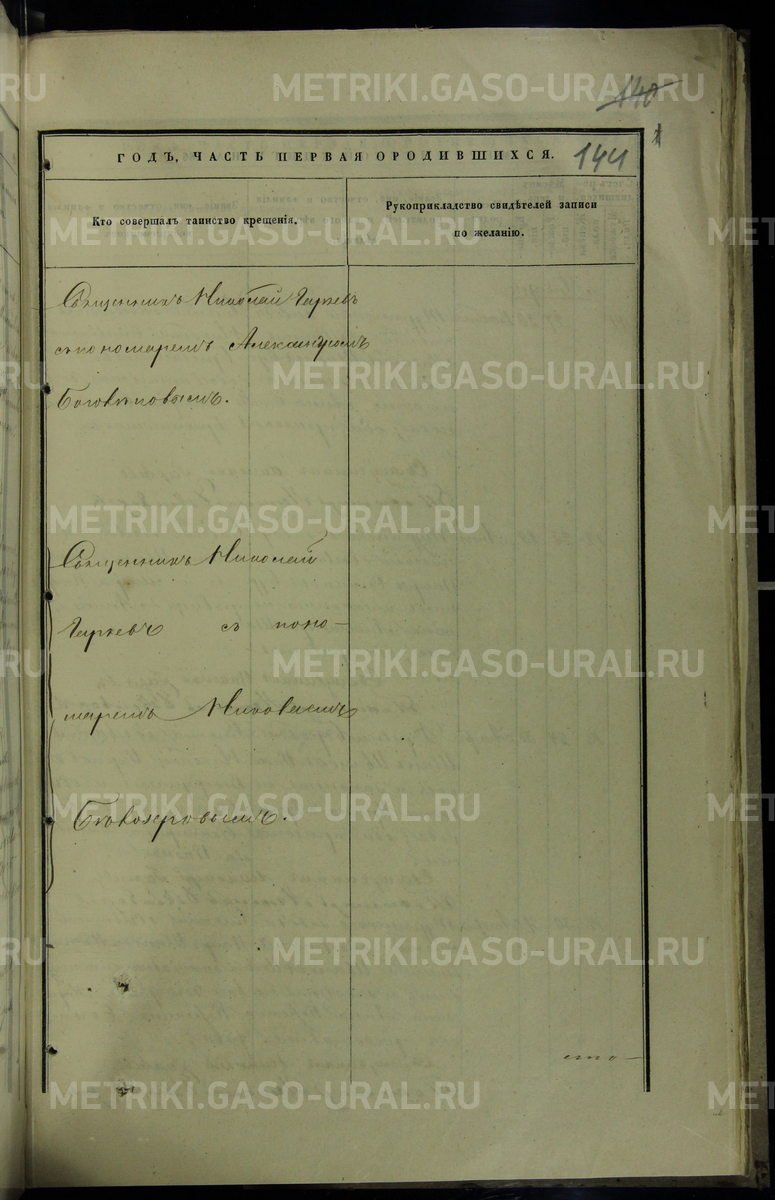 140
144
ГОДЪ, ЧАСТЬ ПЕРВАЯ О РОДИВШИХСЯ.
Кто совершалъ таинство крещенія.
Рукоприкладство свидѣтелей записи
по желанію.
Священникъ Николай
съ пономаремъ Александромъ
Боговыповымъ.
Священникъ Николай
съ поно-
маремъ Николаемъ
METRIKI.GASO-URAL.RU